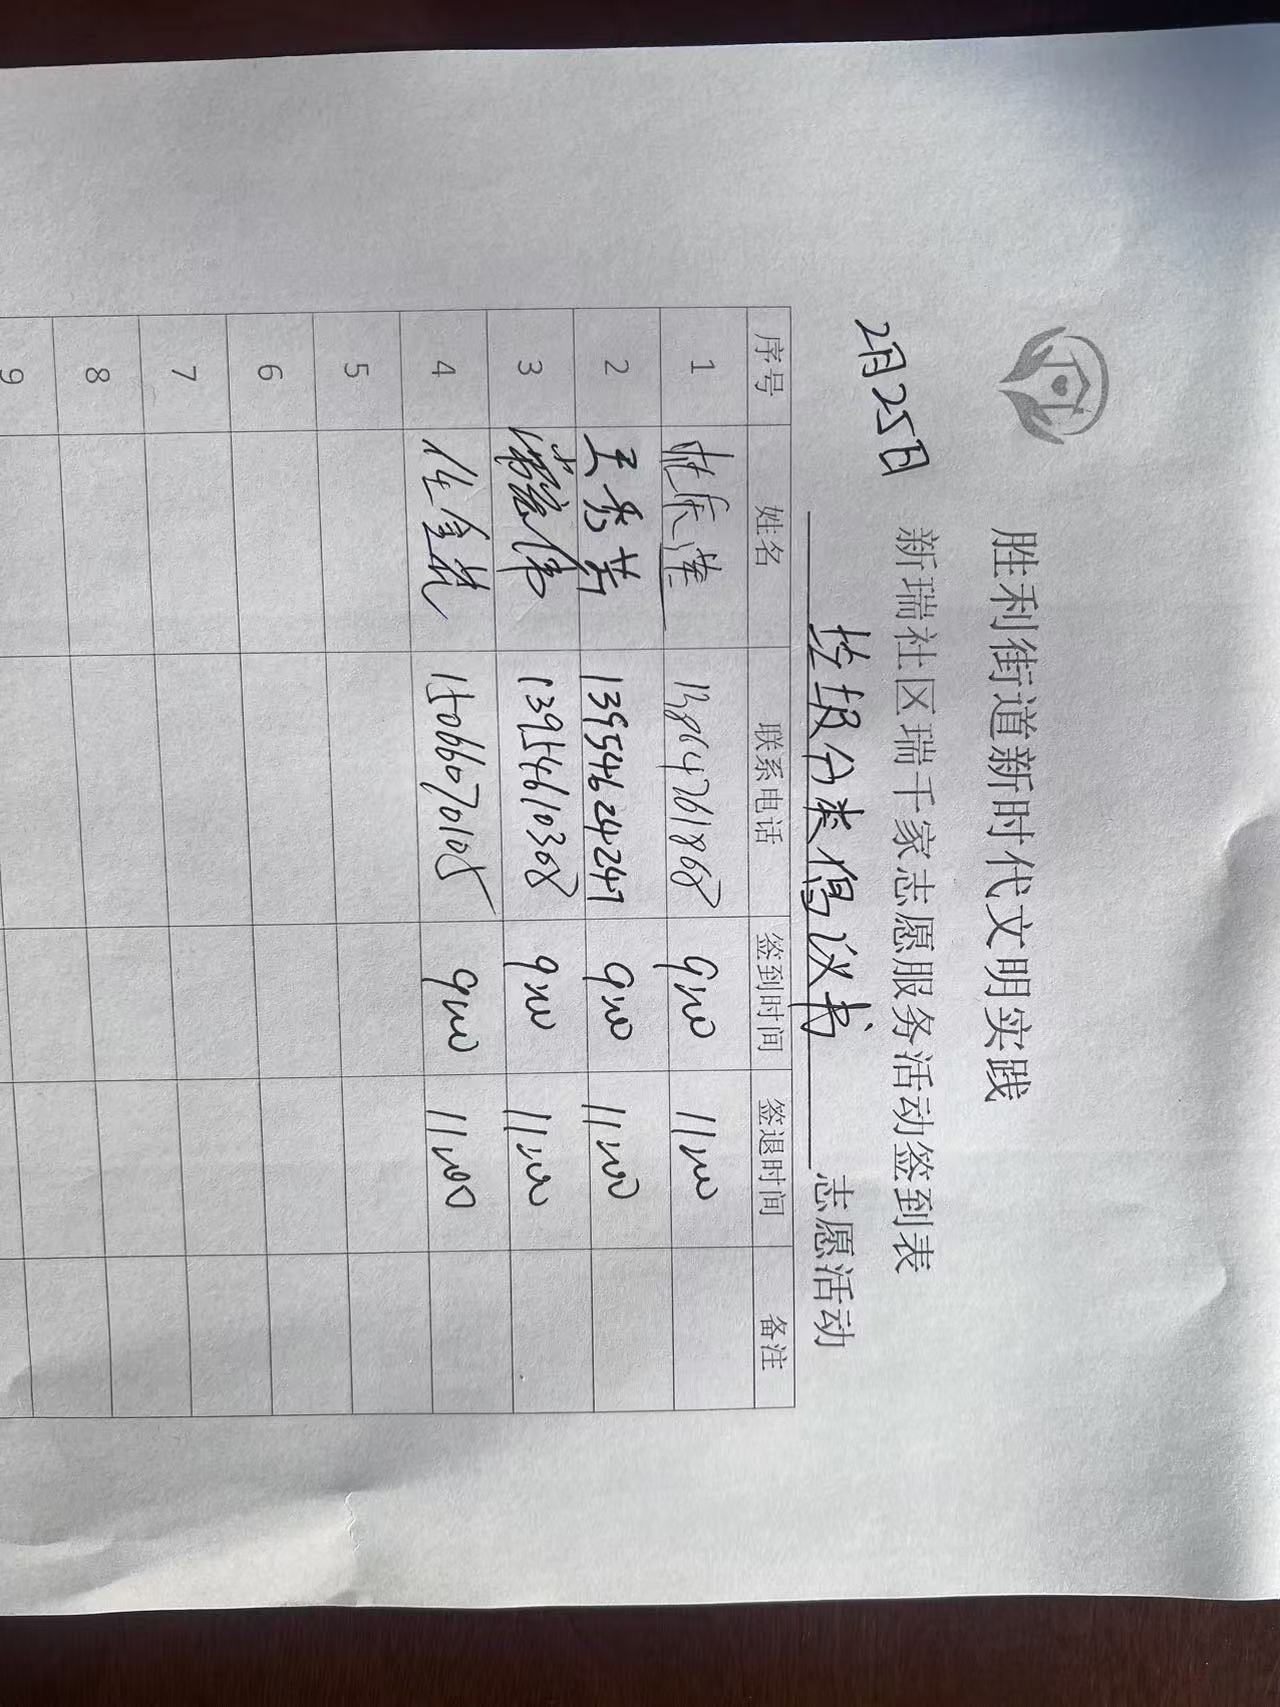 胜利街道新时代文明实践
新瑞社区瑞千家志愿服务活动签到表
2月25日
垃圾分类倡议书 志愿活动
序号 姓名 联系电话 签到时间 签退时间 备注
1 杜乐莲 13864761868 9:00 11:00
2 王秀芳 13954624247 9:00 11:00
3 13954610308 9:00 11:00
4 任金 15066070105 9:00 11:00
5
6
7
8
9